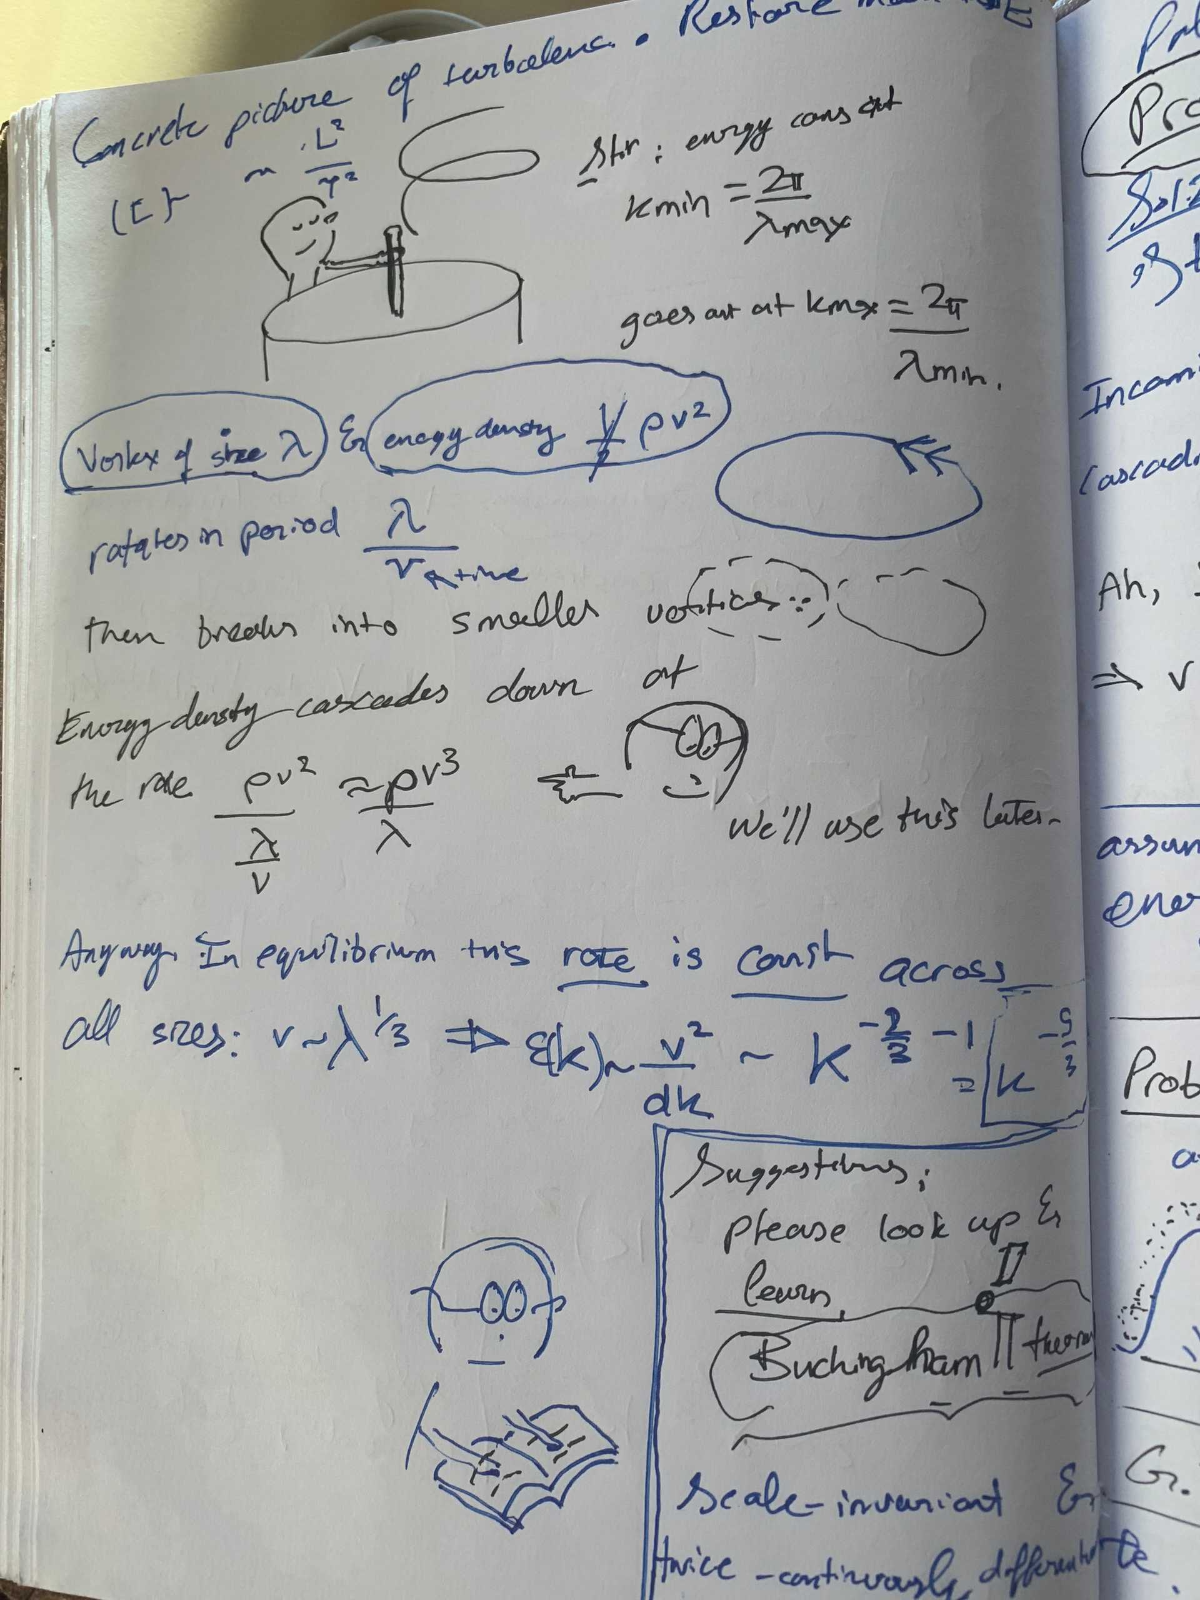 Concrete picture of turbulenc. • Restore
[E] ~ L²/T²
Stir: energy const at
kmin = 2π/λmax
goes out at kmax = 2π/λmin.
Vortex of size λ & energy density ρv²
rotates in period λ/v time
then breaks into smaller vortices
Energy density cascades down at
the rate ρv²/(λ/v) ≈ ρv³/λ
We'll use this later
Anyway. In equilibrium this rate is const across
all sizes: v ~ λ^1/3 ⇒ ε(k) ~ v²/dk ~ k^-2/3 -1 = k^-5/3
Suggestions:
please look up &
learn
Buckingham Π
Scale-invariant &
twice-continuously
Pro
Incomi
Cascadi
Ah,
⇒ v
assum
ener
Prob
a
G.